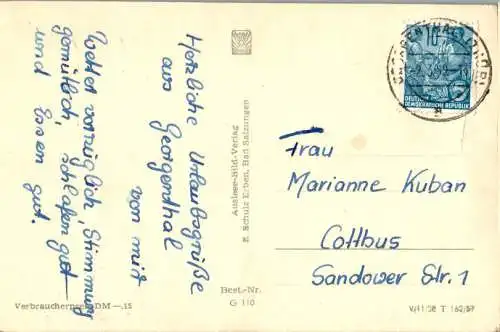 Herzliche Urlaubsgrüße
aus Georgenthal
von mir
Wetter vorzüglich, Stimmung
gemütlich, schlafen gut
und Essen gut.
Auslese-Bild-Verlag
E. Schulz Erben, Bad Salzungen
Verbraucherpreis DM —.15
Best.-Nr.
G 110
GEORGENTHAL (THÜR)
10
DEUTSCHE
DEMOKRATISCHE REPUBLIK
Frau
Marianne Kuban
Cottbus
Sandower Str. 1
V/11/58 T 162/57